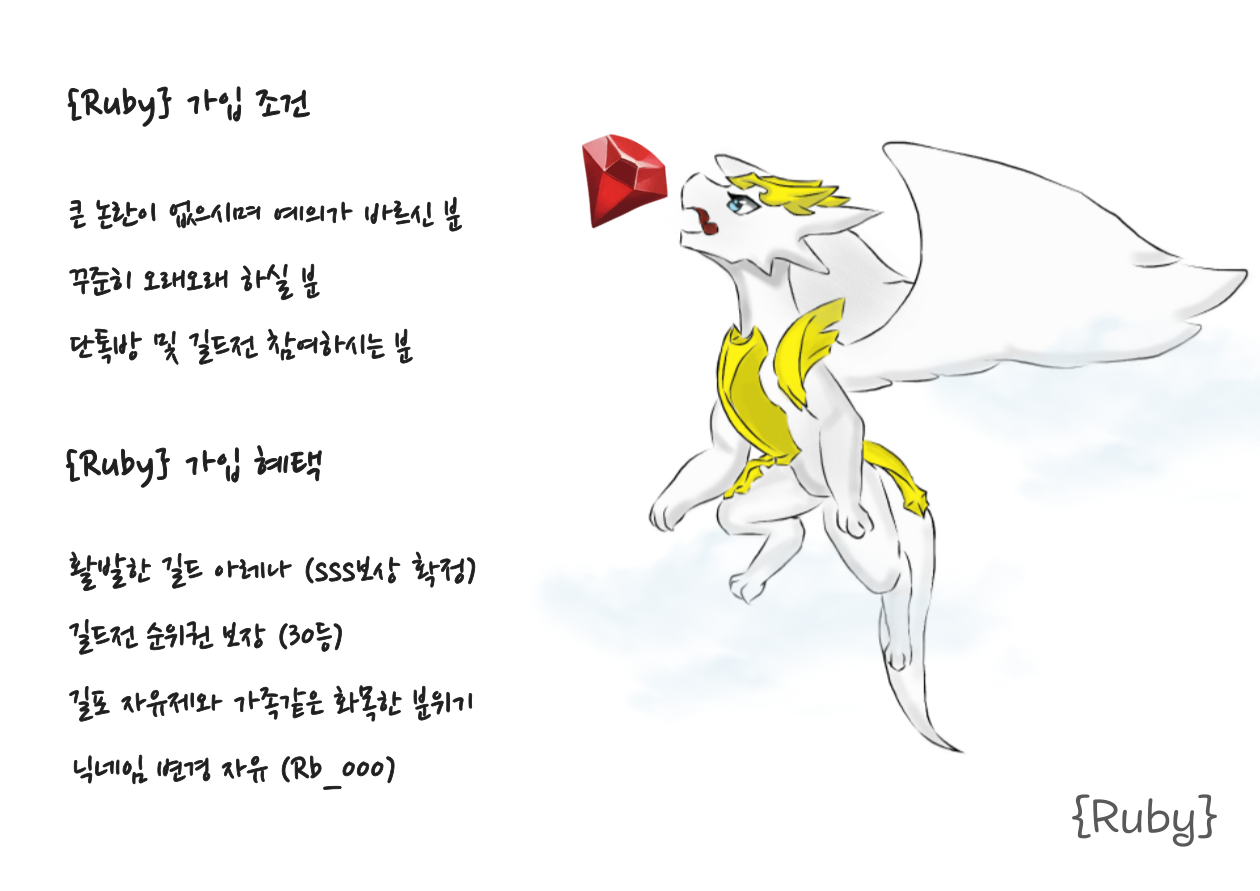 {Ruby} 가입 조건
큰 논란이 없으시며 예의가 바르신 분
꾸준히 오래오래 하실 분
단톡방 및 길드전 참여하시는 분
{Ruby} 가입 혜택
활발한 길드 아레나 (SSS보상 확정)
길드전 순위권 보장 (30등)
길포 자유제와 가족같은 화목한 분위기
닉네임 변경 자유 (Rb_000)
{Ruby}